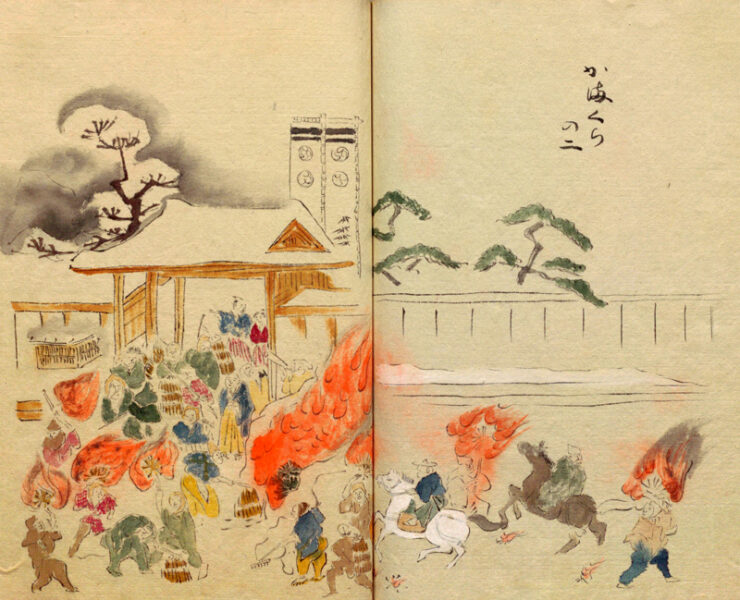 かまくら
の二